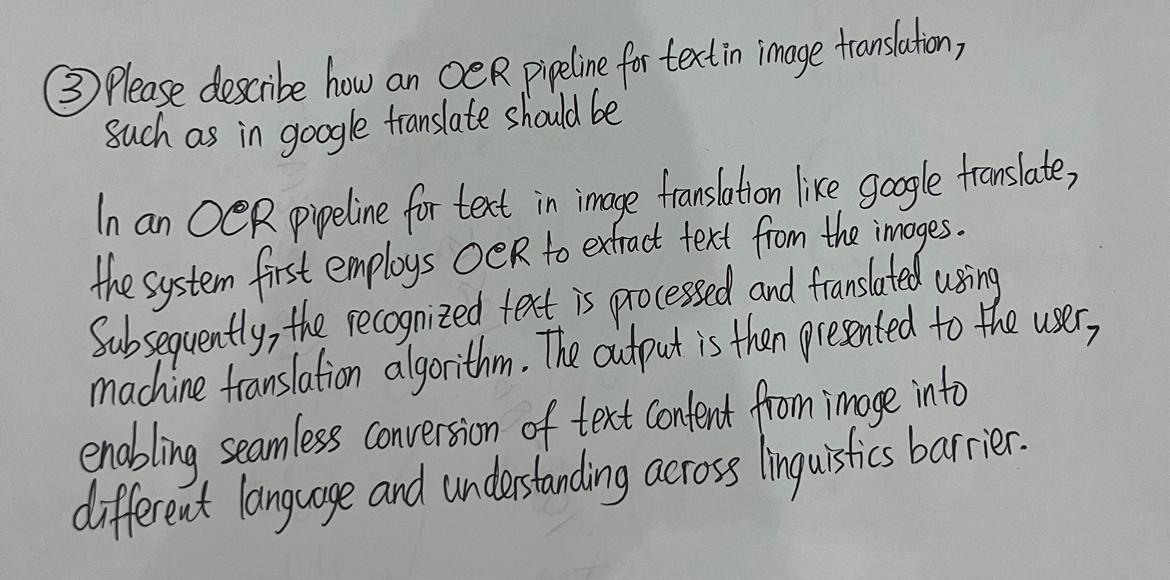 ③ Please describe how an OCR pipeline for text in image translation,
such as in google translate should be
In an OCR pipeline for text in image translation like google translate,
the system first employs OCR to extract text from the images.
Subsequently, the recognized text is processed and translated using
machine translation algorithm. The output is then presented to the user,
enabling seamless conversion of text content from image into
different language and understanding across linguistics barrier.